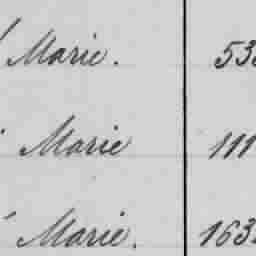 Marie. 53
Marie 111
Marie. 163